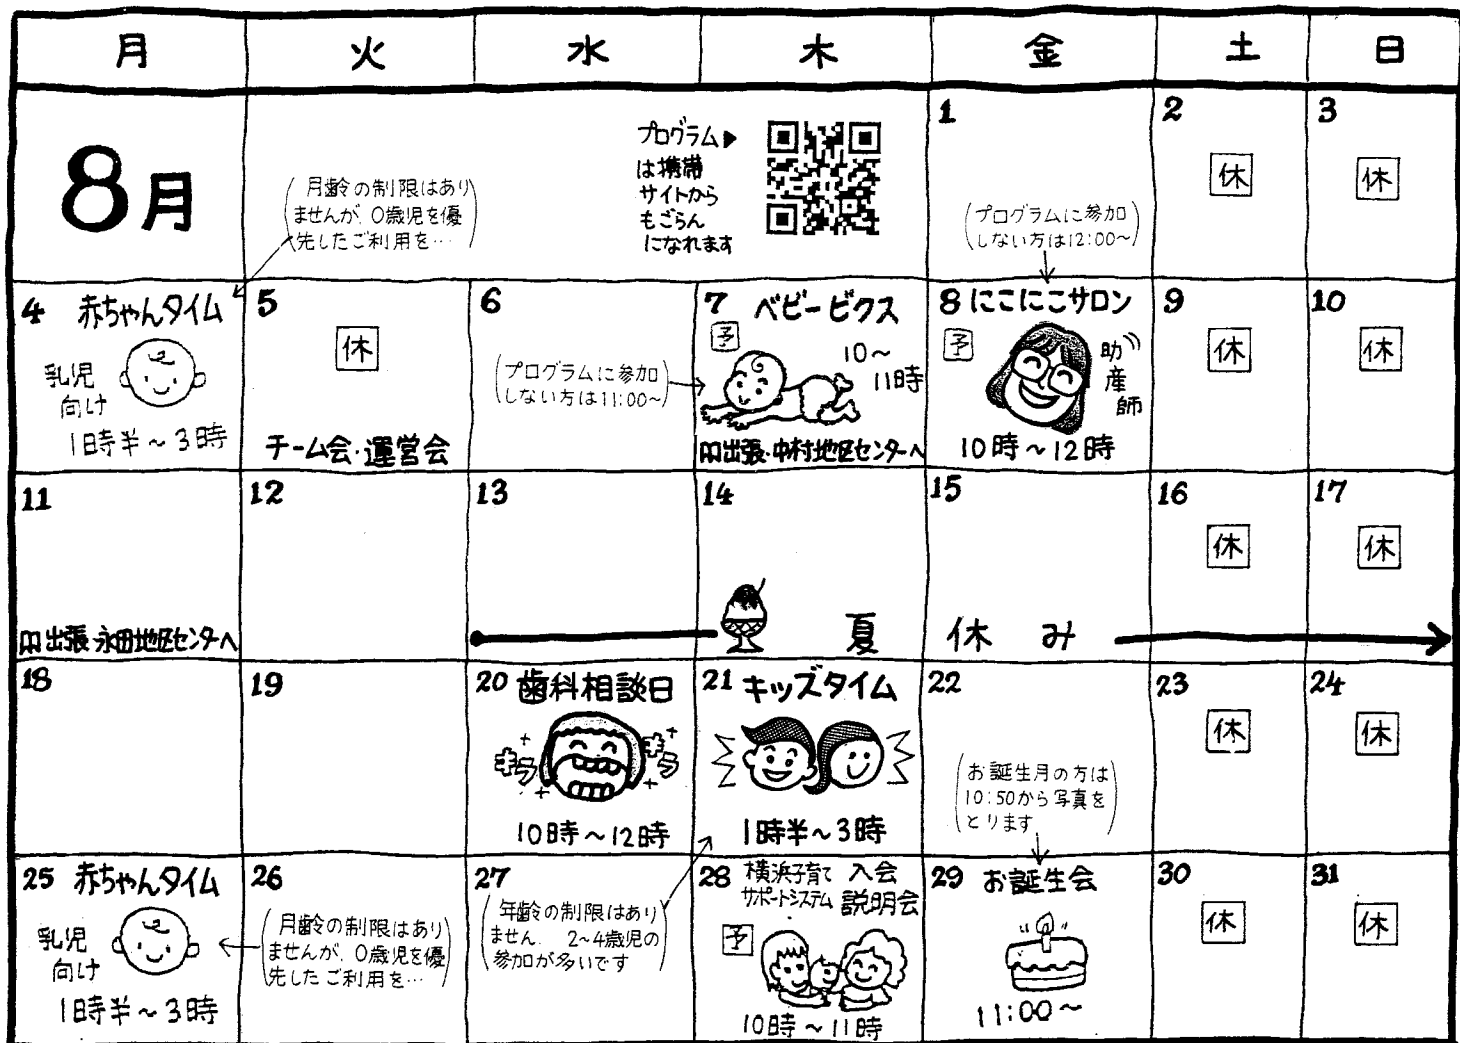 月 火 水 木 金 土 日
8月
月齢の制限はあり
ませんが、0歳児を優
先したご利用を…
プログラム▶
は携帯
サイトから
もごらん
になれます
1
(プログラムに参加
しない方は12:00~)
2
休
3
休
4 赤ちゃんタイム
乳児
向け
1時半~3時
5
休
チーム会・運営会
6
(プログラムに参加
しない方は11:00~)
7 ベビービクス
予
10~
11時
出張・中村地区センターへ
8 にこにこサロン
予
助産師
10時~12時
9
休
10
休
11
出張・永田地区センターへ
12
13
14
15
夏休み
16
休
17
休
18
19
20 歯科相談日
キラ
キラ
10時~12時
21 キッズタイム
1時半~3時
22
お誕生月の方は
10:50から写真を
とります
23
休
24
休
25 赤ちゃんタイム
乳児
向け
1時半~3時
26
月齢の制限はあり
ませんが、0歳児を優
先したご利用を…
27
年齢の制限はあり
ません。2~4歳児の
参加が多いです
28 横浜子育て 入会
サポートシステム 説明会
予
10時~11時
29 お誕生会
11:00~
30
休
31
休